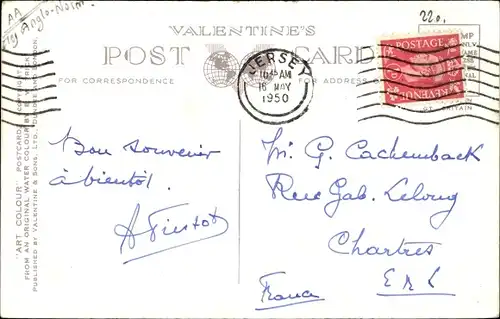 AA
Anglo-Norm
220.
VALENTINE'S
POST CARD
FOR CORRESPONDENCE
FOR ADDRESS
JERSEY
10 AM
16 MAY
1950
POSTAGE
REVENUE
"ART COLOUR" POSTCARD
FROM AN ORIGINAL WATER COLOUR BY
PUBLISHED BY VALENTINE & SONS, LTD., DUNDEE AND LONDON
Bon souvenir
à bientôt.
Mr. G. Cachemback
Rue Gab. Lelong
Chartres
E & L
France